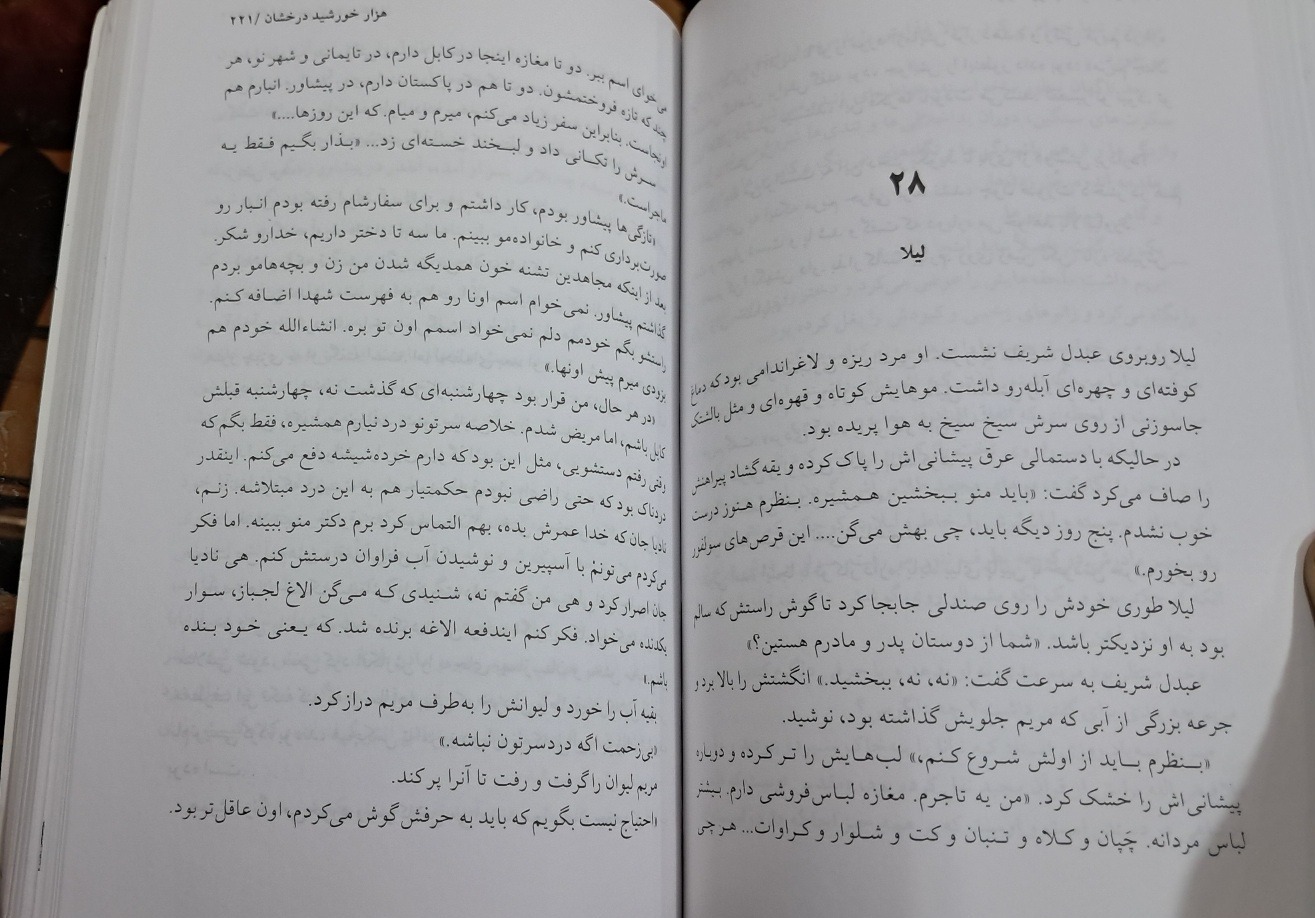 ۲۸
لیلا
لیلا روبروی عبدل شریف نشست. او مرد ریزه و لاغراندامی بود که دماغ
کوفته‌ای و چهره‌ای آبله‌رو داشت. موهایش کوتاه و قهوه‌ای و مثل بالشتک
جاسوزنی از روی سرش سیخ سیخ به هوا پریده بود.
در حالیکه با دستمالی عرق پیشانی‌اش را پاک کرده و یقه گشاد پیراهنش
را صاف می‌کرد گفت: «باید منو ببخشین همشیره. بنظرم هنوز درست
خوب نشدم. پنج روز دیگه باید، چی بهش می‌گن.... این قرص‌های سولفور
رو بخورم.»
لیلا طوری خودش را روی صندلی جابجا کرد تا گوش راستش که سالم
بود به او نزدیکتر باشد. «شما از دوستان پدر و مادرم هستین؟»
عبدل شریف به سرعت گفت: «نه، نه، ببخشید.» انگشتش را بالا برد و
جرعه بزرگی از آبی که مریم جلویش گذاشته بود، نوشید.
«بنظرم باید از اولش شروع کنم،» لب‌هایش را تر کرده و دوباره
پیشانی‌اش را خشک کرد. «من یه تاجرم. مغازه لباس‌فروشی دارم. بیشتر
لباس مردانه. چَپان و کلاه و تنبان و کت و شلوار و کراوات... هر چی
هزار خورشید درخشان /۲۲۱
می‌خوای اسم ببر. دو تا مغازه اینجا در کابل دارم، در تایمانی و شهر نو، هر
چند که تازه فروختمشون. دو تا هم در پاکستان دارم، در پیشاور. انبارم هم
اونجاست. بنابراین سفر زیاد می‌کنم، میرم و میام. که این روزها....»
سرش را تکانی داد و لبخند خسته‌ای زد... «بذار بگیم فقط یه
ماجراست.»
«تازگی‌ها پیشاور بودم، کار داشتم و برای سفارشام رفته بودم انبار رو
صورت‌برداری کنم و خانواده‌مو ببینم. ما سه تا دختر داریم، خدارو شکر.
بعد از اینکه مجاهدین تشنه خون همدیگه شدن من زن و بچه‌هامو بردم
گذاشتم پیشاور. نمی‌خوام اسم اونا رو هم به فهرست شهدا اضافه کنم.
راستشو بگم خودمم دلم نمی‌خواد اسمم اون تو بره. انشاءالله خودم هم
بزودی میرم پیش اونها.»
«در هر حال، من قرار بود چهارشنبه‌ای که گذشت نه، چهارشنبه قبلش
کابل باشم، اما مریض شدم. خلاصه سرتونو درد نیارم همشیره، فقط بگم که
وقتی رفتم دستشویی، مثل این بود که دارم خرده‌شیشه دفع می‌کنم. اینقدر
دردناک بود که حتی راضی نبودم حکمتیار هم به این درد مبتلاشه. زنم،
نادیا جان که خدا عمرش بده، بهم التماس کرد برم دکتر منو ببینه. اما فکر
می‌کردم می‌تونم با آسپیرین و نوشیدن آب فراوان درستش کنم. هی نادیا
جان اصرار کرد و هی من گفتم نه، شنیدی که می‌گن الاغ لجباز، سوار
یکدنده می‌خواد. فکر کنم ایندفعه الاغه برنده شد. که یعنی خود بنده
باشم.»
بقیه آب را خورد و لیوانش را به‌طرف مریم دراز کرد.
«بی‌زحمت اگه دردسرتون نباشه.»
مریم لیوان را گرفت و رفت تا آنرا پر کند.
«احتیاج نیست بگویم که باید به حرفش گوش می‌کردم، اون عاقل‌تر بود.